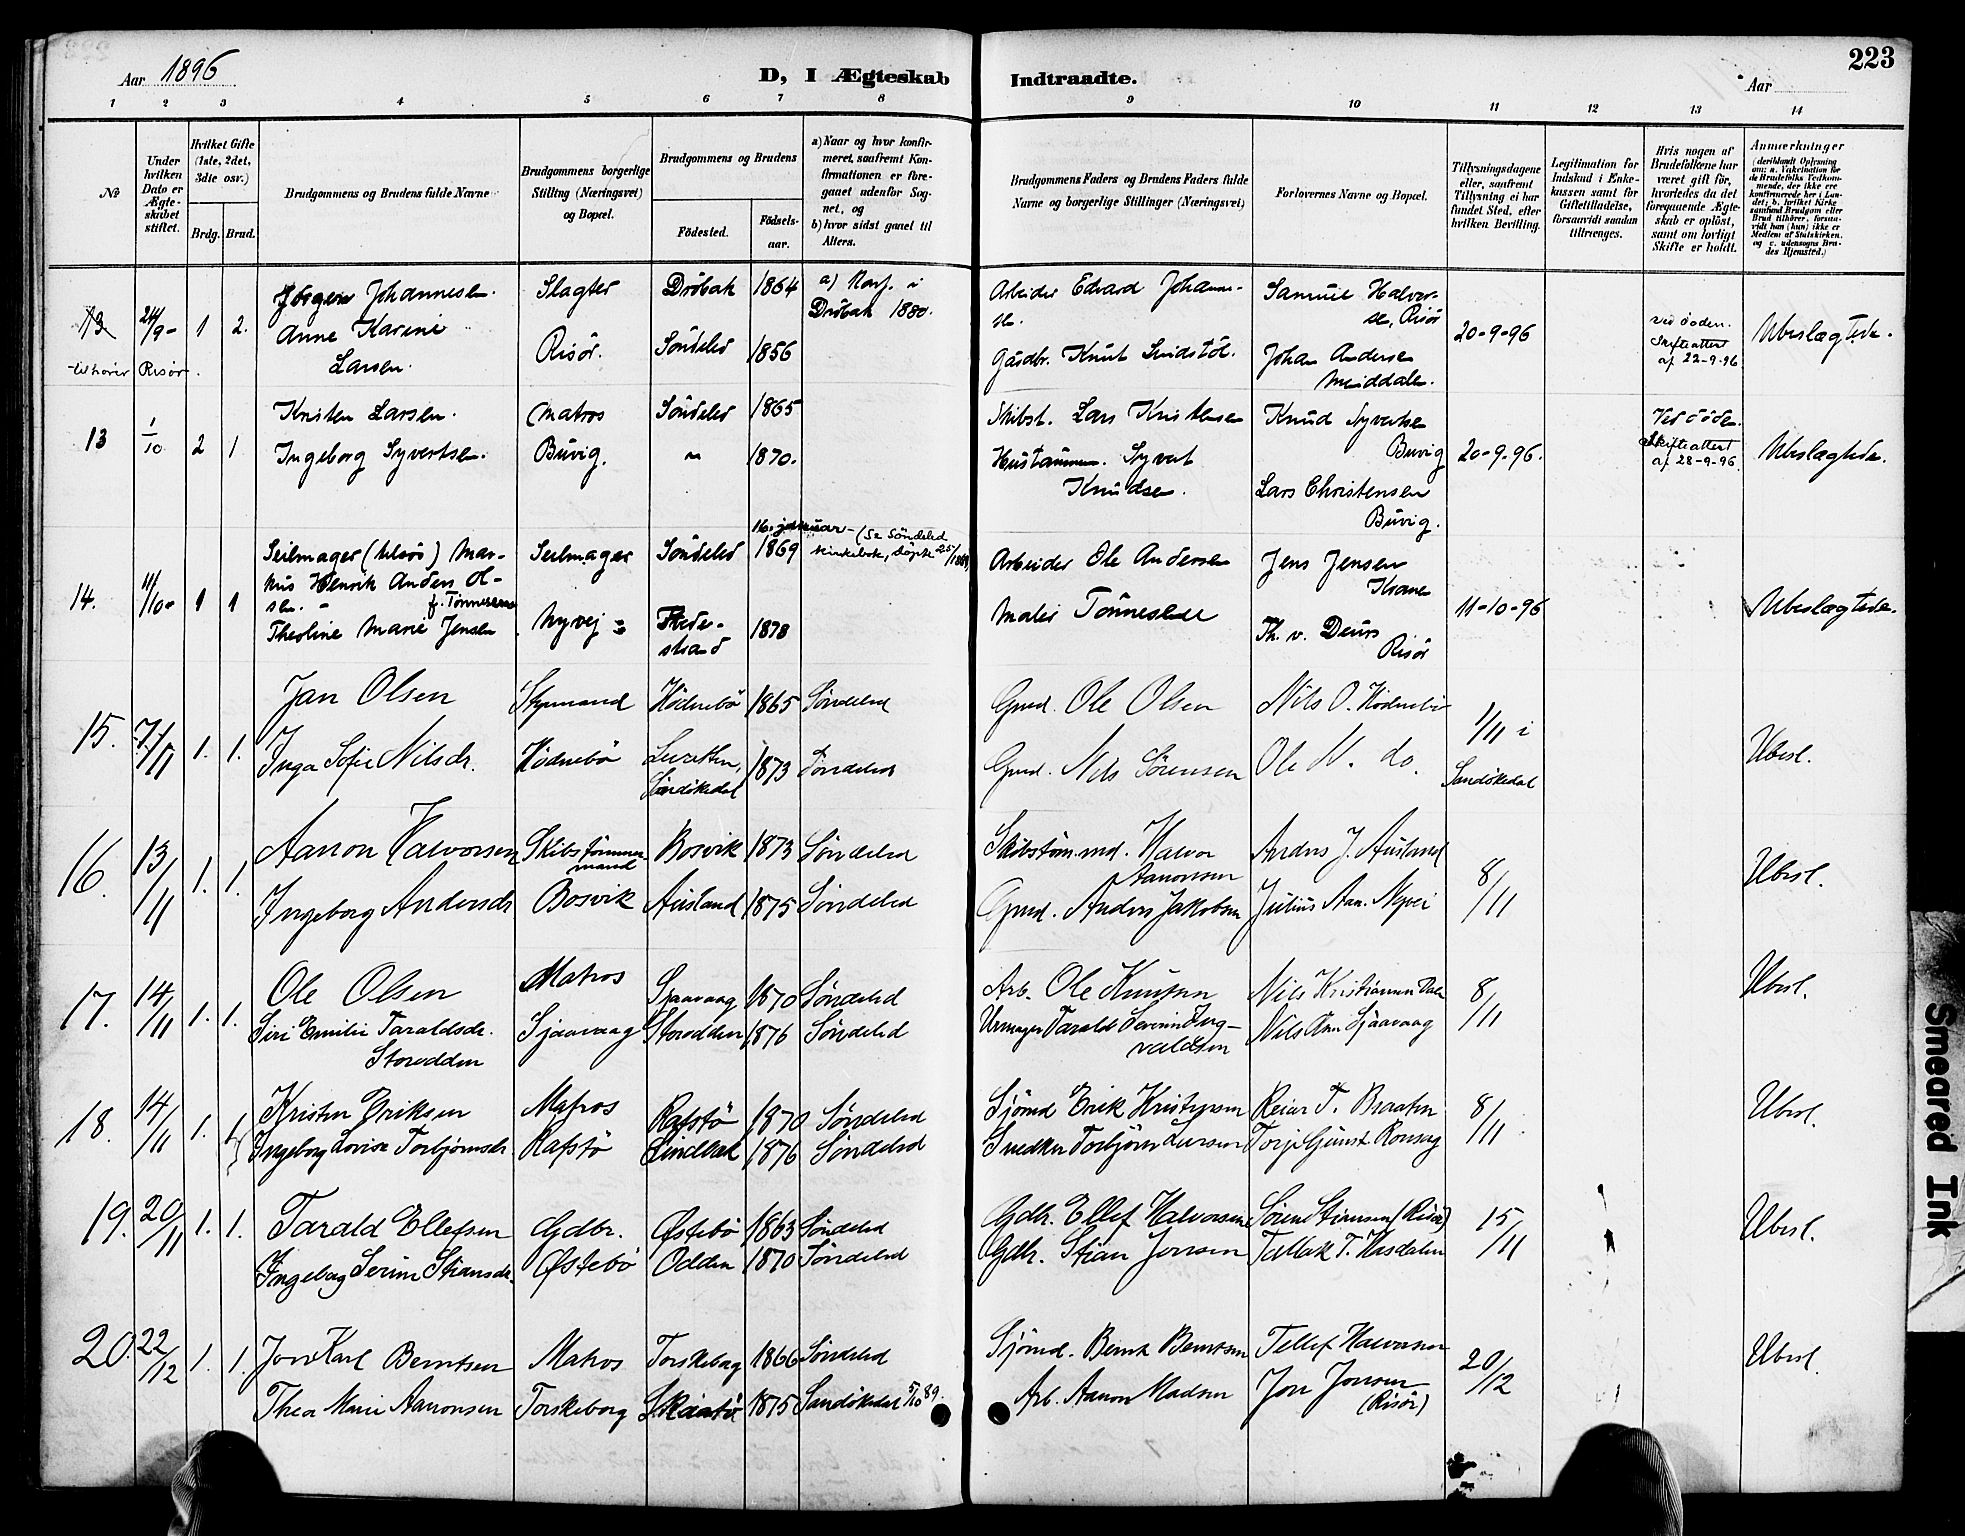 Aar 1896
D, I Ægteskab Indtraadte.
223
Aar
1 2 3 4 5 6 7 8 9 10 11 12 13 14
No
Under hvilken Dato er Ægteskabet stiftet.
Hvilket Gifte (1ste, 2det, 3die osv.)
Brdg. Brud.
Brudgommens og Brudens fulde Navne
Brudgommens borgerlige Stilling (Næringsvei) og Bopæl.
Brudgommens og Brudens
Fødested. Fødselsaar.
a) Naar og hvor konfirmeret, saafremt Konfirmationen er foregaaet udenfor Sognet, og
b) hvor sidst ganet til Alters.
Brudgommens Faders og Brudens Faders fulde Navne og borgerlige Stillinger (Næringsvei)
Forlovernes Navne og Bopæl.
Tillysningsdagene eller, saafremt Tillysning ei har fundet Sted, efter hvilken Bevilling.
Legitimation for Indskud i Enkekassen samt for Giftetilladelse, forsaavidt saadan tiltrænges.
Hvis nogen af Brudefolkene har været gift før, hvorledes da det foregaaende Ægteskab er opløst, samt om lovligt Skifte er holdt.
Anmærkninger
(deriblandt Oplysning om: a. Vakcination for de Brudefolks Vedkommende, der ikke ere konfirmerede her i Landet; b. hvilket Kirkesamfund Brudgom eller Brud tilhører, forsaavidt han (hun) ikke er Medlem af Statskirken, og c. udensogns Brudes Hjemsted.)
13 24/9- 1 2. Jørgen Johannesen. Slagter Drøbak 1864 a) Konf. i Drøbak 1880. Arbeider Edvard Johannesen. Samuel Halvorsen, Risør 20-9-96 ved døden. Skifteattest af 22-9-96 Ubeslægtede.
Anne Karine Larsen. Risør. Søndeled 1856 Gaardbr. Knut Johan Andersen
tilhører Risør.
13 1/10 2 1 Kristen Larsen. Matros Søndeled 1865 Skibst. Lars Kristensen Knud Syvertsen Buvig 20-9-96. Ved døden. Skifteattest af 28-9-96 Ubeslægtede.
Ingeborg Syvertsen. Buvig. " 1870. Syvert Knudsen. Lars Christensen Buvig.
14. 11/10- 1 1 Seilmager Markus Henrik Anders Olsen. Seilmager Søndeled 16. januar 1869 (Se Søndeled kirkebok, døpt 25/ 1869) Arbeider Ole Andersen Jens Jensen Krane 11-10-96 Ubeslægtede.
f. Tønnesen
Theoline Marie Jensen Nyvej Tvedestrand 1878 Maler Tønnesen Th. v. Deurs Risør
15. 7/11 1. 1. Jan Olsen Styrmand Hødnebø 1865 Søndeled Gmd. Ole Olsen Nils O. Hødnebø 1/11 i Sandøkedal Ubesl.
Inga Sofie Nilsdr. Hødnebø Sandøkedal 1873 Søndeled Gmd. Nils Sørensen Ole N. do.
16. 13/11 1. 1. Aanon Halvorsen Skibstømmermand Bosvik 1873 Søndeled Skibstøm.md. Halvor Aanonsen Anders J. Ausland 8/11 Ubesl.
Ingeborg Andersdr Bosvik Ausland 1875 Søndeled Gmd. Anders Jakobsen Julius Aan. Nyvei
17. 14/11 1. 1. Ole Olsen Matros Sjaavaag 1870 Søndeled Arb. Ole Knutsen Nils Kristiansen Dale 8/11 Ubesl.
Siri Emilie Taraldsdr. Storodden Sjaavaag Storodden 1876 Søndeled Urmager Tarald Severin Ingvaldsen Nils Aan. Sjaavaag
18. 14/11 1. 1. Kristen Eriksen Matros Rafstø 1870 Søndeled Sjømd Erik Kristensen Reiar T. Braaten 8/11 Ubesl.
Ingeborg Lovise Torbjørnsdr Rafstø Lindbak 1876 Søndeled Snedker Torbjørn Larsen Torje
19. 20/11 1. 1. Tarald Ellefsen Gdbr. Østebø 1863 Søndeled Gdbr. Ellef Halvorsen Søren Stiansen (Risør) 15/11 Ubesl.
Ingeborg Serine Stiansdr. Østebø Odden 1870 Søndeled Gdbr. Stian Jensen Tallak T. Hasdalen
20. 22/12 1. 1. Jon Karl Berntsen Matros Torskeberg 1866 Søndeled Sjømd. Bernt Berntsen Tellef Halvorsen 20/12 Ubesl.
Thea Marie Aanonsen Torskeberg Skaatø 1875 Sandøkedal 5/10 89. Arb. Aanon Madsen Jon Jonsen (Risør)
Smeared Ink